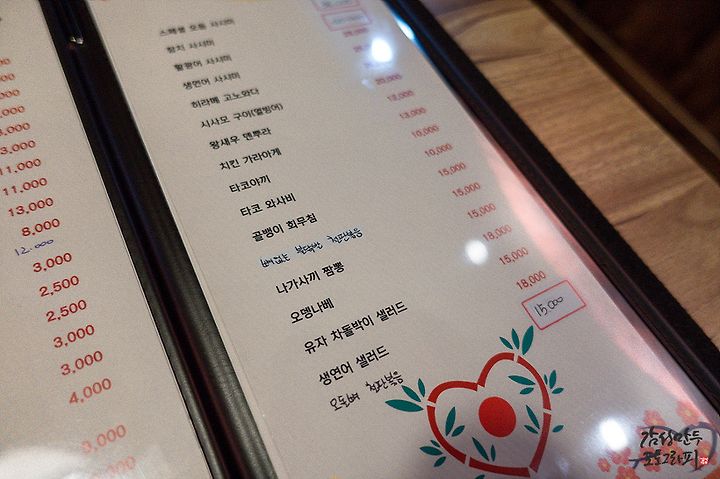 11,000
11,000
13,000
8,000
12.000
3,000
2,500
2,500
3,000
3,000
4,000
3,000
스페셜 모듬 사시미
참치 사시미
활광어 사시미
생연어 사시미
히라메 고노와다
시사모 구이(열빙어)
왕새우 덴뿌라
치킨 가라아게
타코야끼
타코 와사비
골뱅이 회무침
뼈없는 불닭발 철판볶음
나가사끼 짬뽕
오뎅나베
유자 차돌박이 샐러드
생연어 샐러드
오돌뼈 철판볶음
20,000
12,000
13,000
10,000
10,000
15,000
15,000
18,000
15,000
18,000
15.000
감성만두
포토그라피